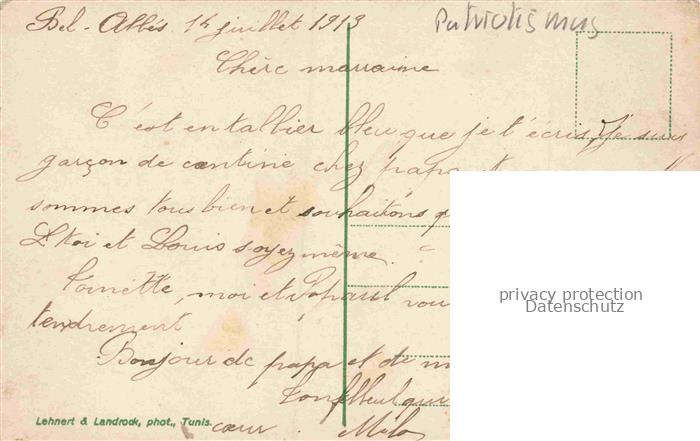 Bel-Abbés 14 juillet 1913
Patriotismus
Chère marraine
C'est en tablier bleu que je t'écris, je suis
garçon de cantine chez papa
sommes tous bien et souhaitons q
toi et Louis soyez même.
moi et Popaul vou
tendrement
Bonjour de papa et de m
ton filleul qui
cœur.
Lehnert & Landrock, phot., Tunis.
privacy protection
Datenschutz